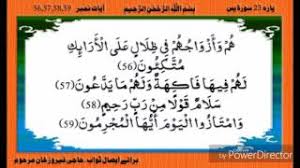 آیات نمبر 56,57,58,59 بسم الله الرَّحْمٰنِ الرَّحِيم پارہ 23 سورہ یٰس
هُمْ وَأَزْوَاجُهُمْ فِي ظِلَالٍ عَلَى الْأَرَائِكِ
مُتَّكِئُونَ (56)
لَهُمْ فِيهَا فَاكِهَةٌ وَلَهُمْ مَا يَدَّعُونَ (57)
سَلَامٌ قَوْلًا مِنْ رَبٍّ رَحِيمٍ (58)
وَامْتَازُوا الْيَوْمَ أَيُّهَا الْمُجْرِمُونَ (59)
برائے ایصال ثواب۔ حاجی فیروز خان مرحوم
PowerDirector